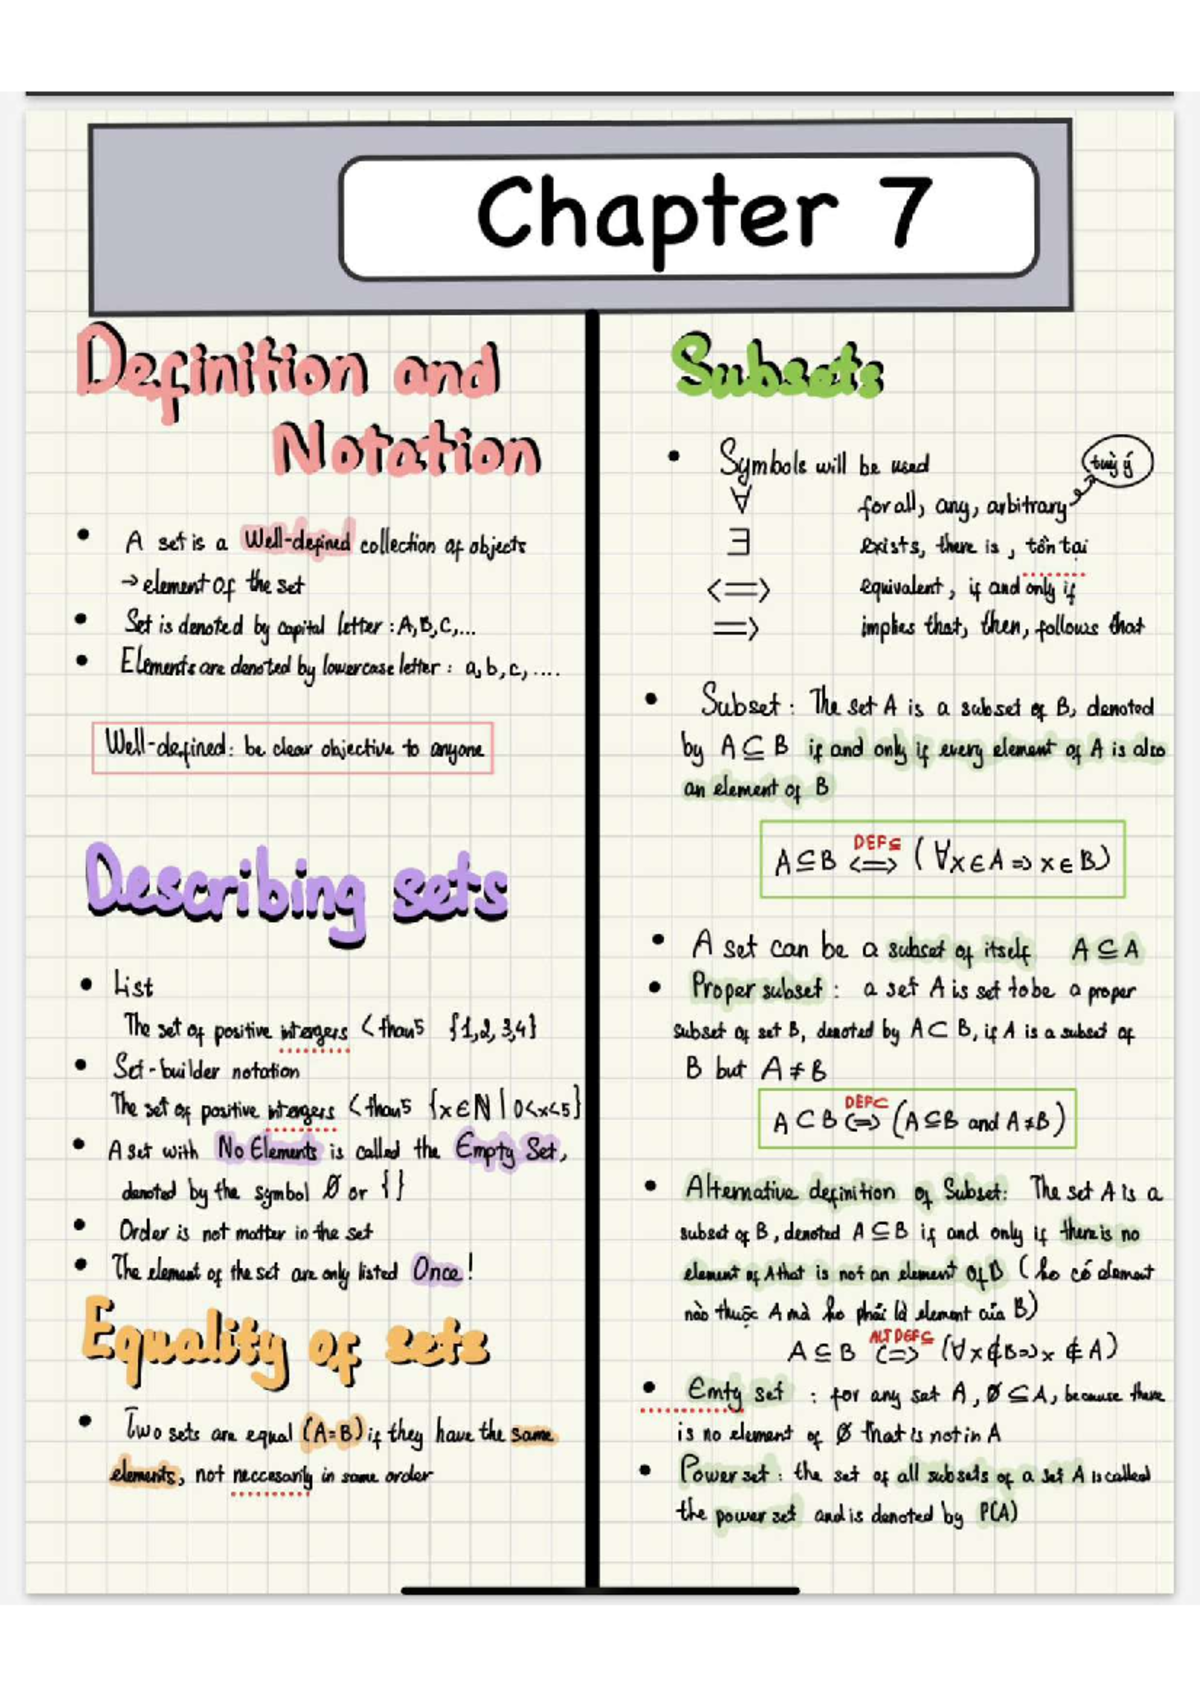 Chapter 7
Definition and
Notation
• A set is a Well-defined collection of objects
→ element of the set
• Set is denoted by capital letter : A, B, C, ...
• Elements are denoted by lowercase letter : a, b, c, ....
Well-defined: be clear objective to anyone
Describing sets
• List
The set of positive intergers < than 5 {1,2,3,4}
• Set-builder notation
The set of positive intergers < than 5 {x∈ℕ | 0<x<5}
• A set with No Elements is called the Empty Set,
denoted by the symbol Ø or { }
• Order is not matter in the set
• The element of the set are only listed Once!
Equality of sets
• Two sets are equal (A=B) if they have the same
elements, not neccesarily in same order
Subsets
• Symbols will be used
tuỳ ý
∀ for all, any, arbitrary
∃ exists, there is, tồn tại
<=> equivalent, if and only if
=> implies that, then, follows that
• Subset : The set A is a subset of B, denoted
by A ⊆ B if and only if every element of A is also
an element of B
A ⊆ B <=> DEF ⊆ ( ∀x ∈ A => x ∈ B)
• A set can be a subset of itself A ⊆ A
• Proper subset : a set A is set to be a proper
subset of set B, denoted by A ⊂ B, if A is a subset of
B but A ≠ B
A ⊂ B <=> DEF ⊂ (A ⊆ B and A ≠ B)
• Alternative definition of Subset: The set A is a
subset of B, denoted A ⊆ B if and only if there is no
element of A that is not an element of B ( ko có element
nào thuộc A mà ko phải là element của B)
A ⊆ B <=> ALT DEF ⊆ (∀x ∉ B => x ∉ A)
• Emty set : for any set A, Ø ⊆ A, because there
is no element of Ø that is not in A
• Power set : the set of all subsets of a set A is called
the power set and is denoted by P(A)